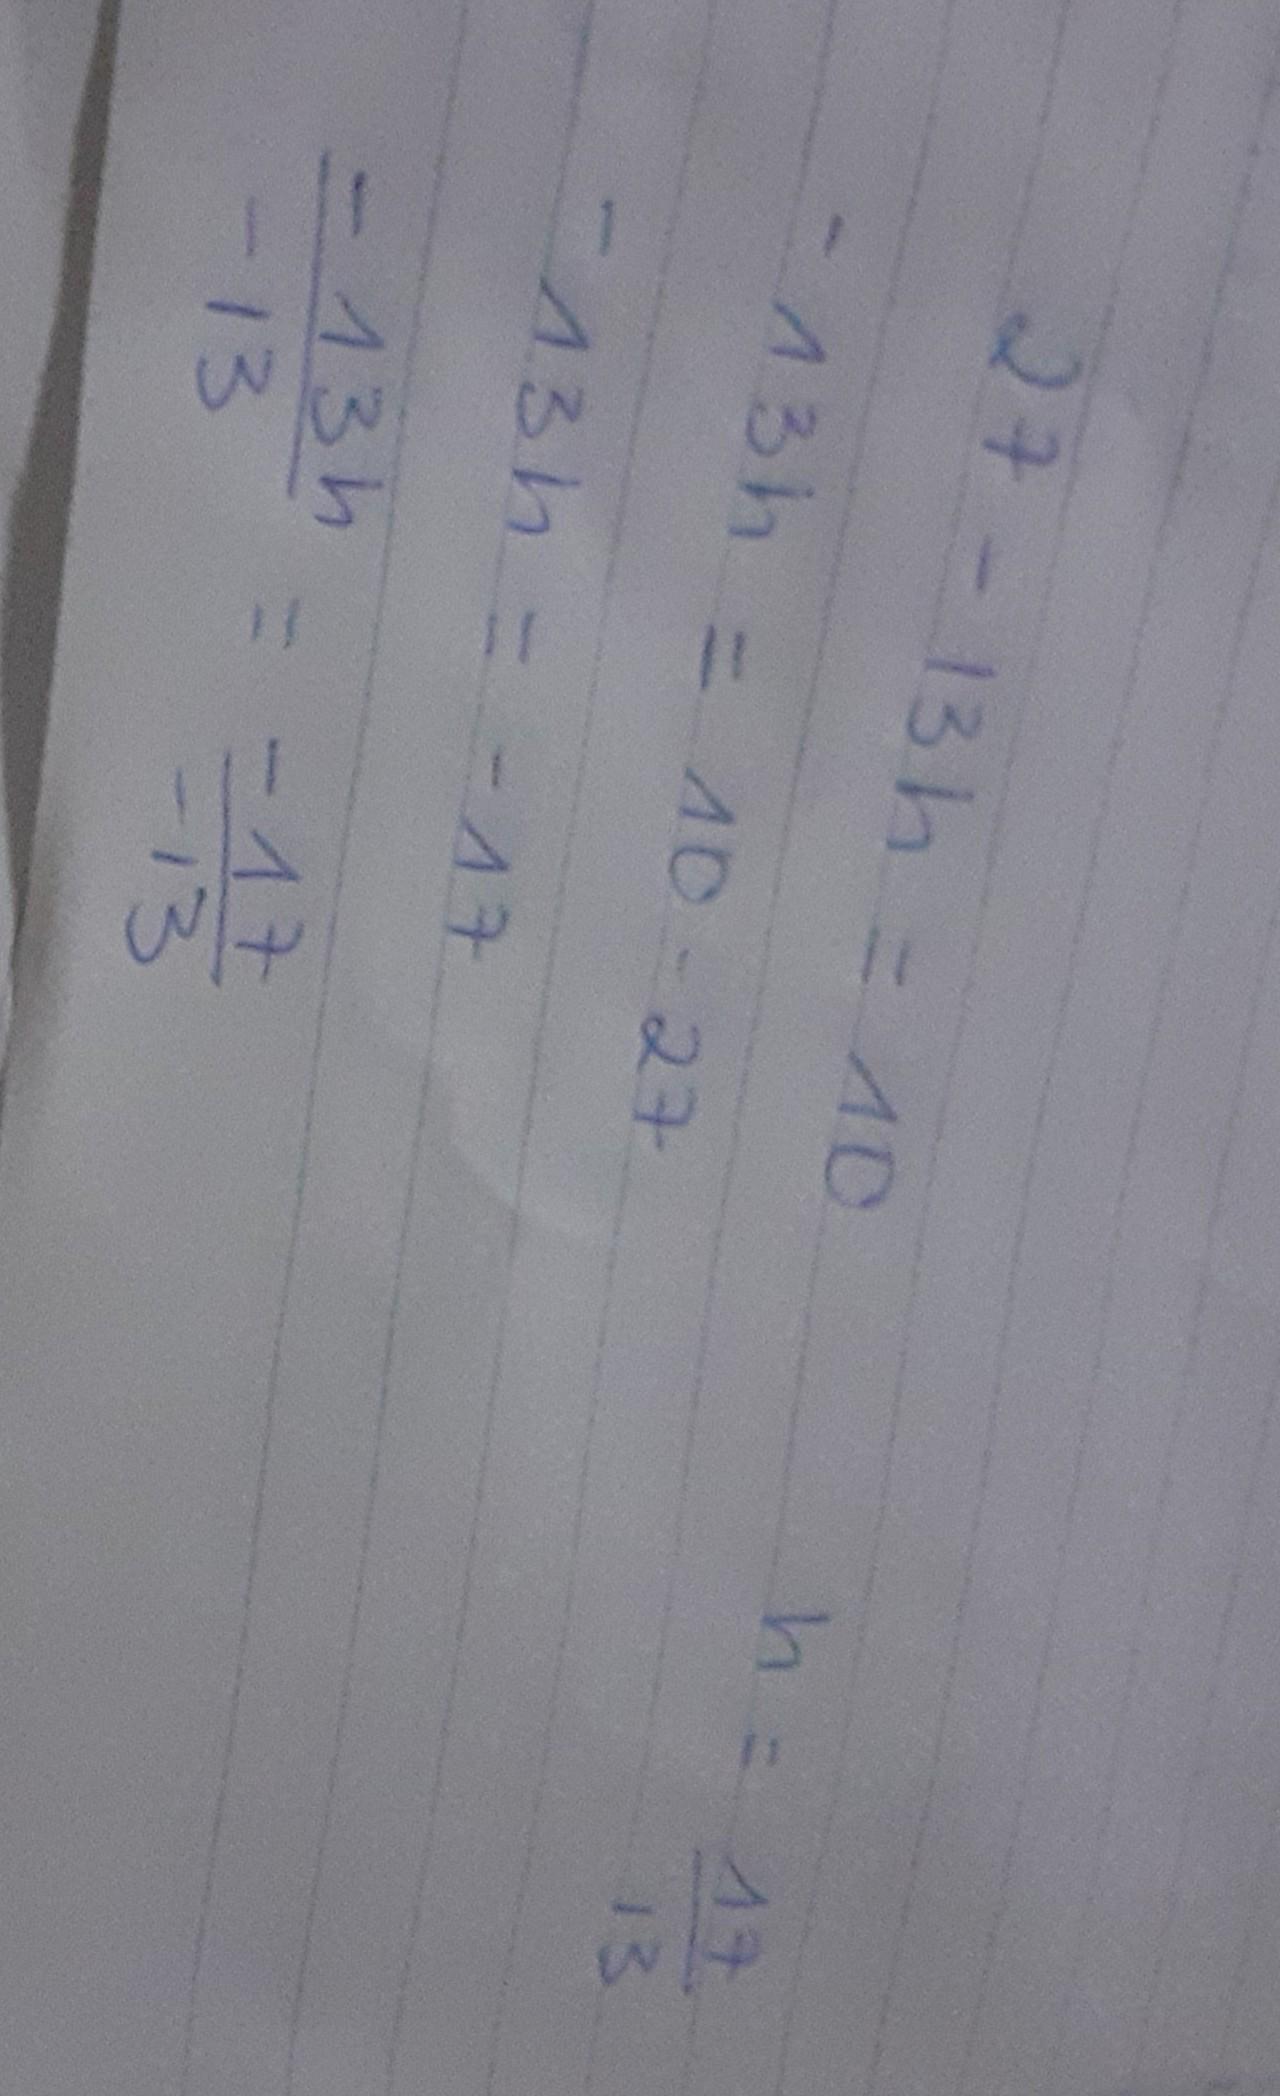 27 - 13h = 10
- 13h = 10 - 27
- 13h = - 17
- 13h / - 13 = - 17 / - 13
h = 17 / 13